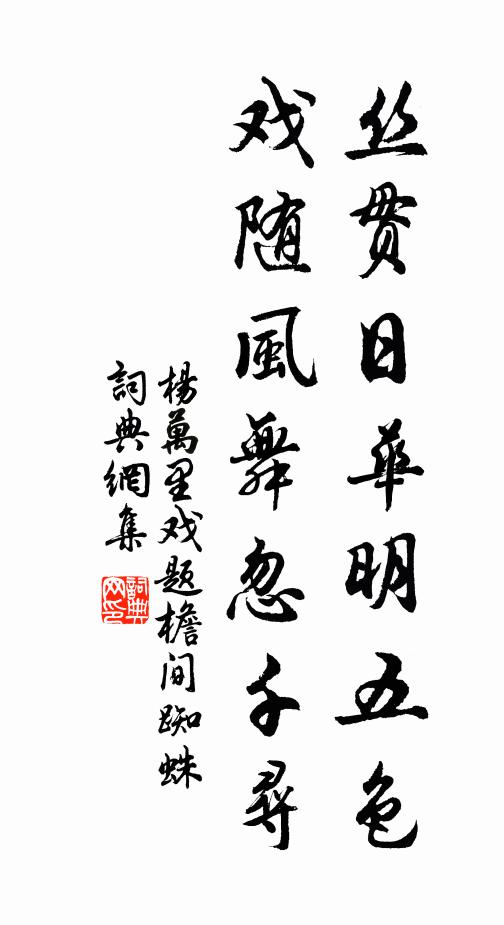 丝贯日华明五色
戏随風舞忽千尋
楊萬里戏题檐间蜘蛛
詞典網集
詞典网印